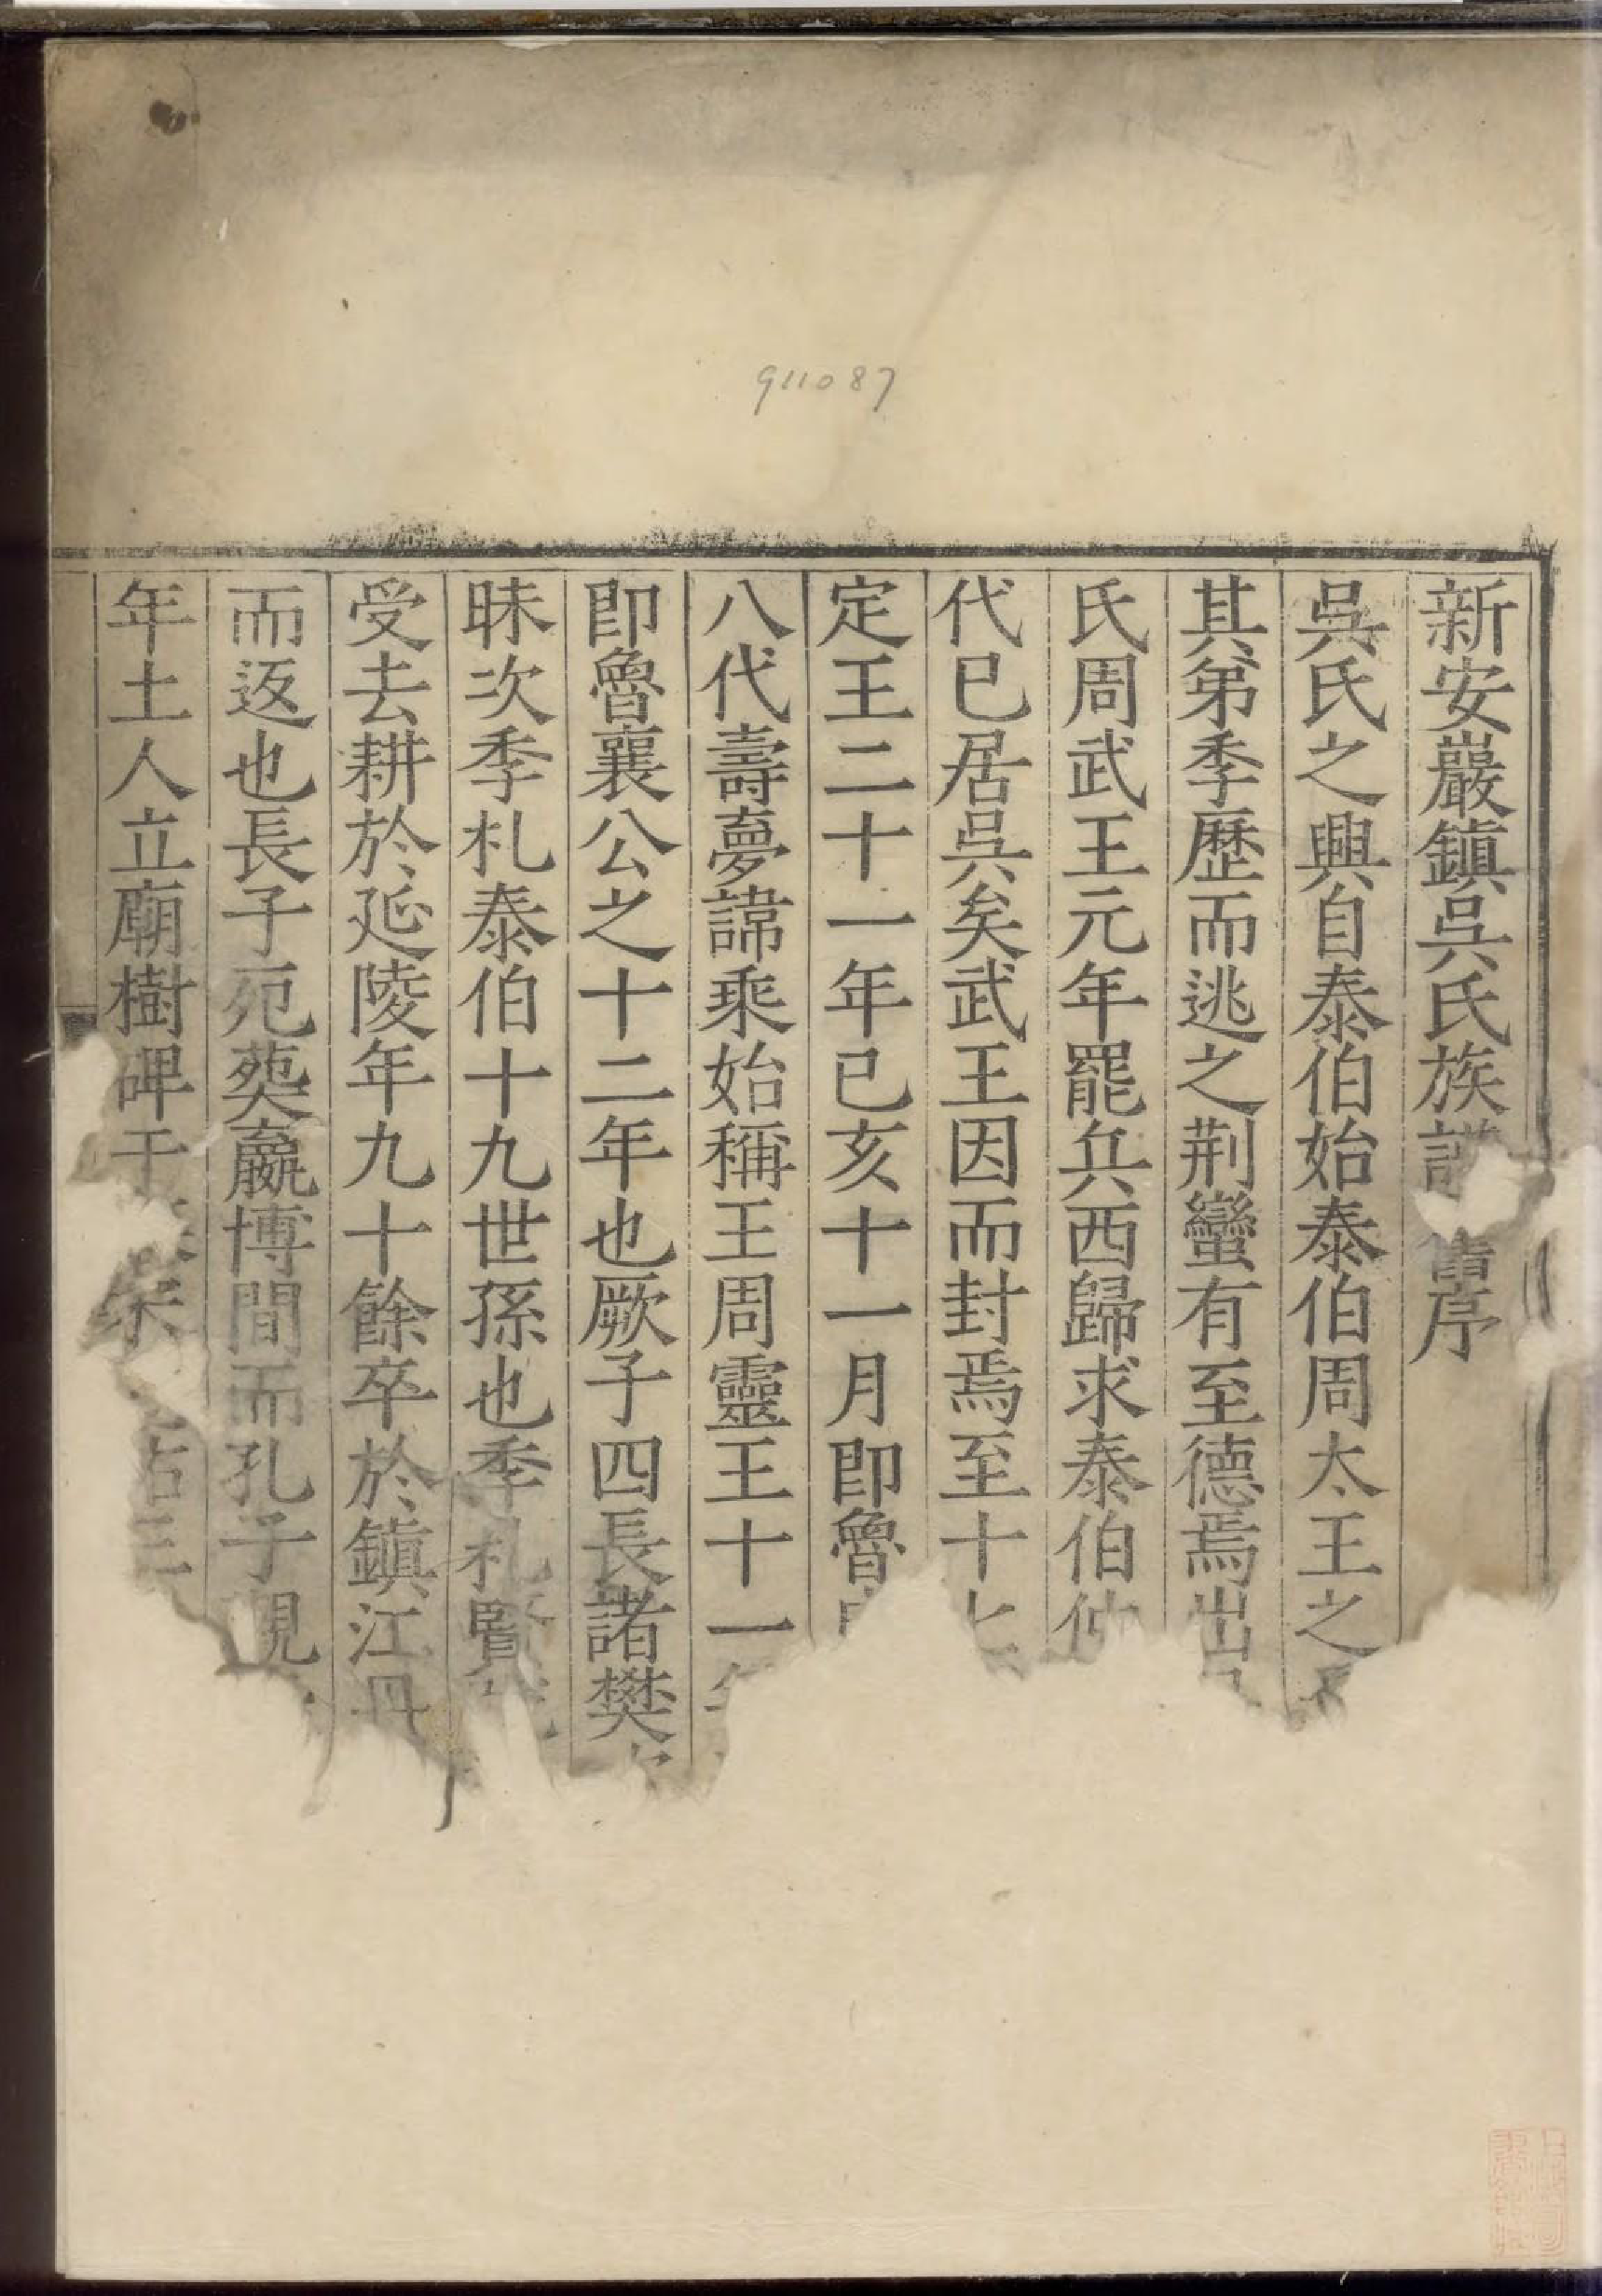 911087
新安巖鎮吳氏族譜舊序
吳氏之興自泰伯始泰伯周太王之
其弟季歷而逃之荆蠻有至德焉出
氏周武王元年罷兵西歸求泰伯仲
代已居吳矣武王因而封焉至十七
定王二十一年已亥十一月即魯
八代壽夢諱乘始稱王周靈王十一年
即魯襄公之十二年也厥子四長諸樊
昧次季札泰伯十九世孫也季札賢
受去耕於延陵年九十餘卒於鎮江丹
而返也長子宛葬嬴博間而孔子覘
年土人立廟樹碑于